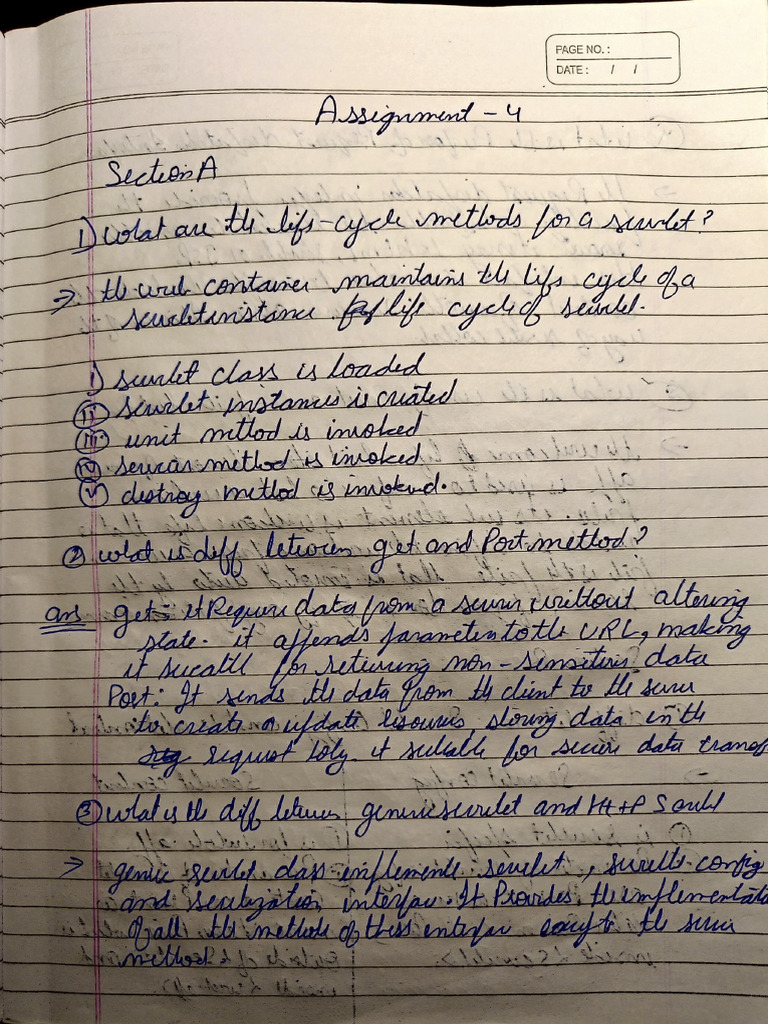 PAGE NO. :
DATE : / /
Assignment - 4
Section A
1) what are the life-cycle methods for a servlet?
→ the web container maintains the life cycle of a
servlet instance life cycle of servlet.
i) servlet class is loaded
ii) servlet instance is created
iii) init method is invoked
iv) service method is invoked
v) destroy method is invoked.
2) what is diff between get and Post method?
ans get :- it Require data from a server without altering
state. it appends parameters to the URL, making
it suitable for retrieving non-sensitive data
Post : It sends the data from the client to the server
to create or update resources, storing data in the
request body. it suitable for secure data transf
3) what is the diff between generic servlet and Http Servlet
→ generic servlet class implements servlet, servlet config
and serialization interface. It Provides the implementatio
of all the methods of these interface except the service
method